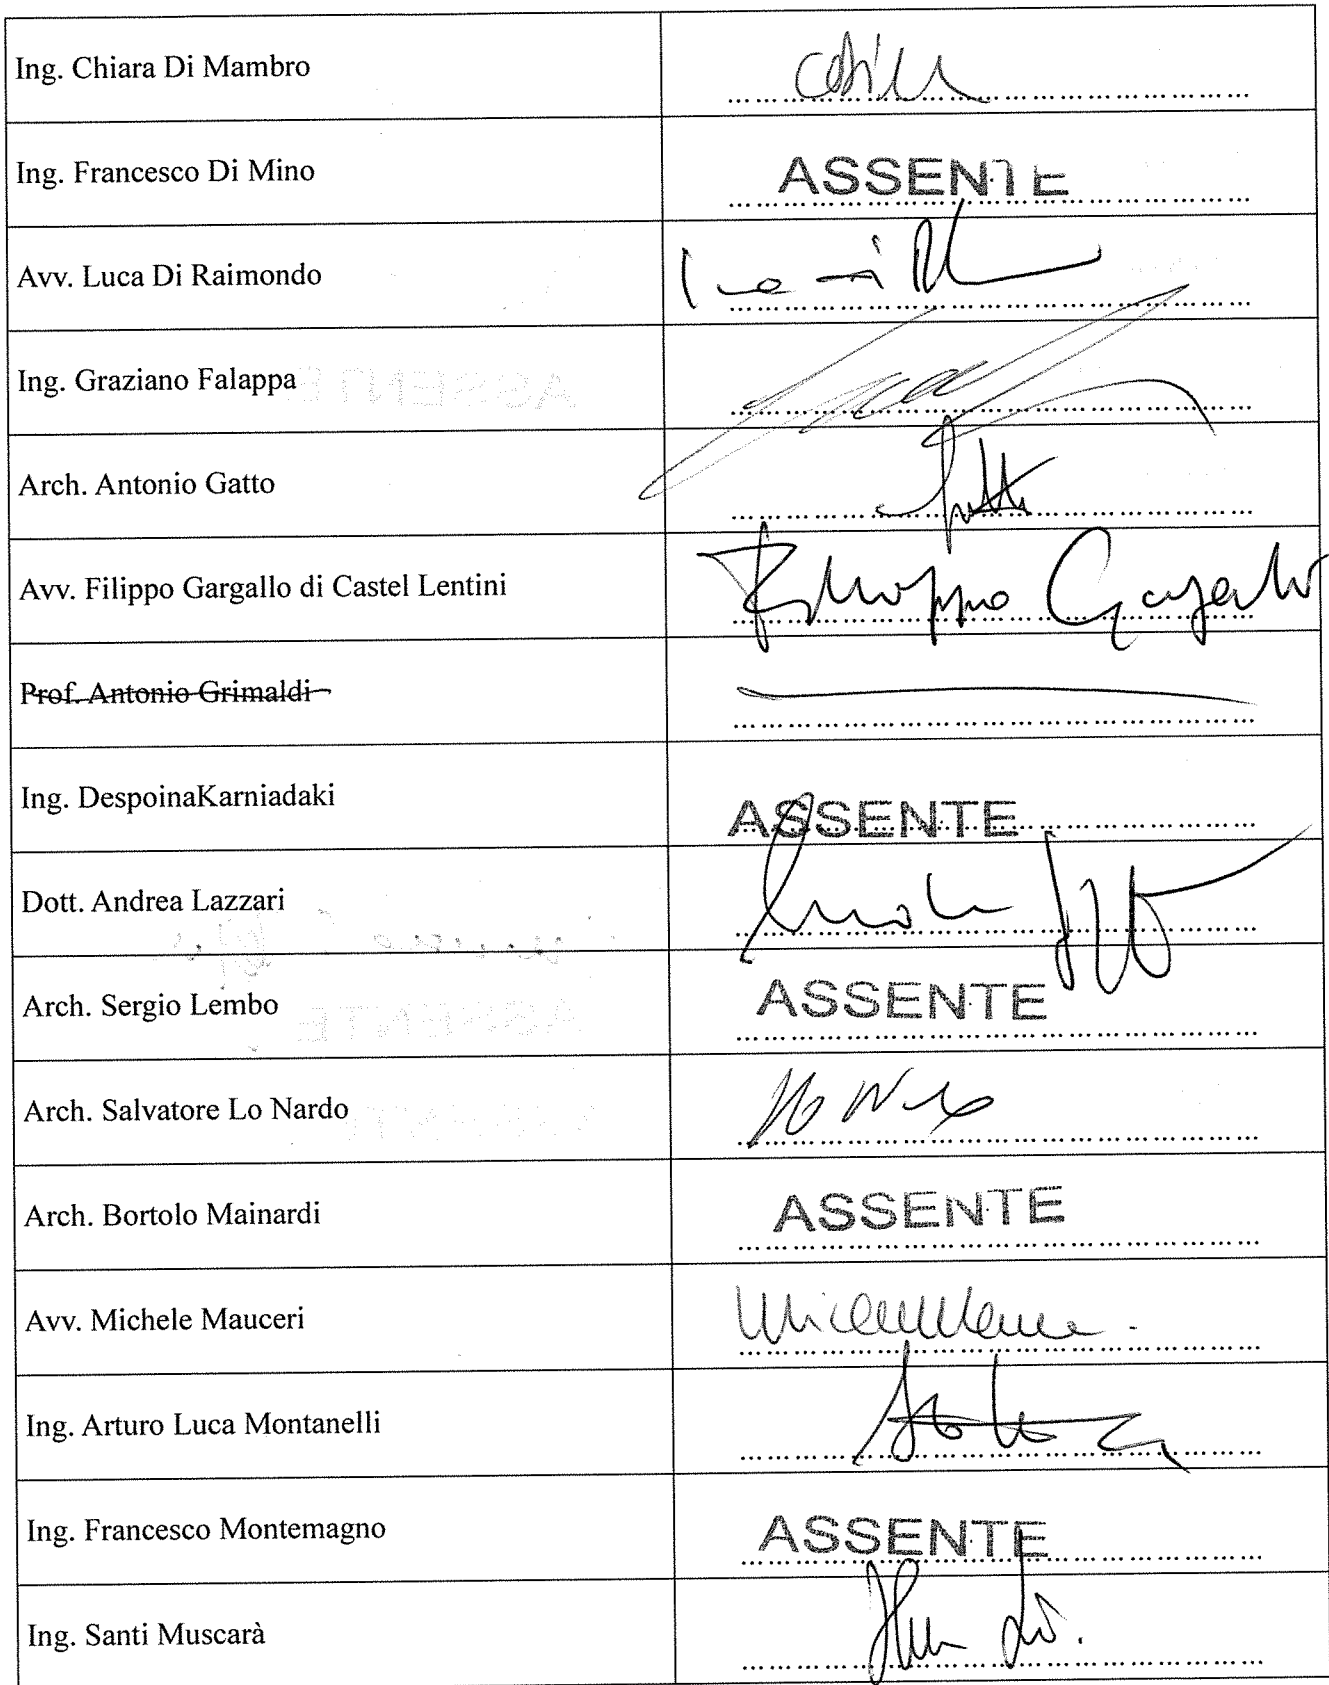 Ing. Chiara Di Mambro
Ing. Francesco Di Mino ASSENTE
Avv. Luca Di Raimondo
Ing. Graziano Falappa
Arch. Antonio Gatto
Avv. Filippo Gargallo di Castel Lentini Filippo Gargallo
Prof. Antonio Grimaldi
Ing. DespoinaKarniadaki ASSENTE
Dott. Andrea Lazzari
Arch. Sergio Lembo ASSENTE
Arch. Salvatore Lo Nardo
Arch. Bortolo Mainardi ASSENTE
Avv. Michele Mauceri
Ing. Arturo Luca Montanelli
Ing. Francesco Montemagno ASSENTE
Ing. Santi Muscarà